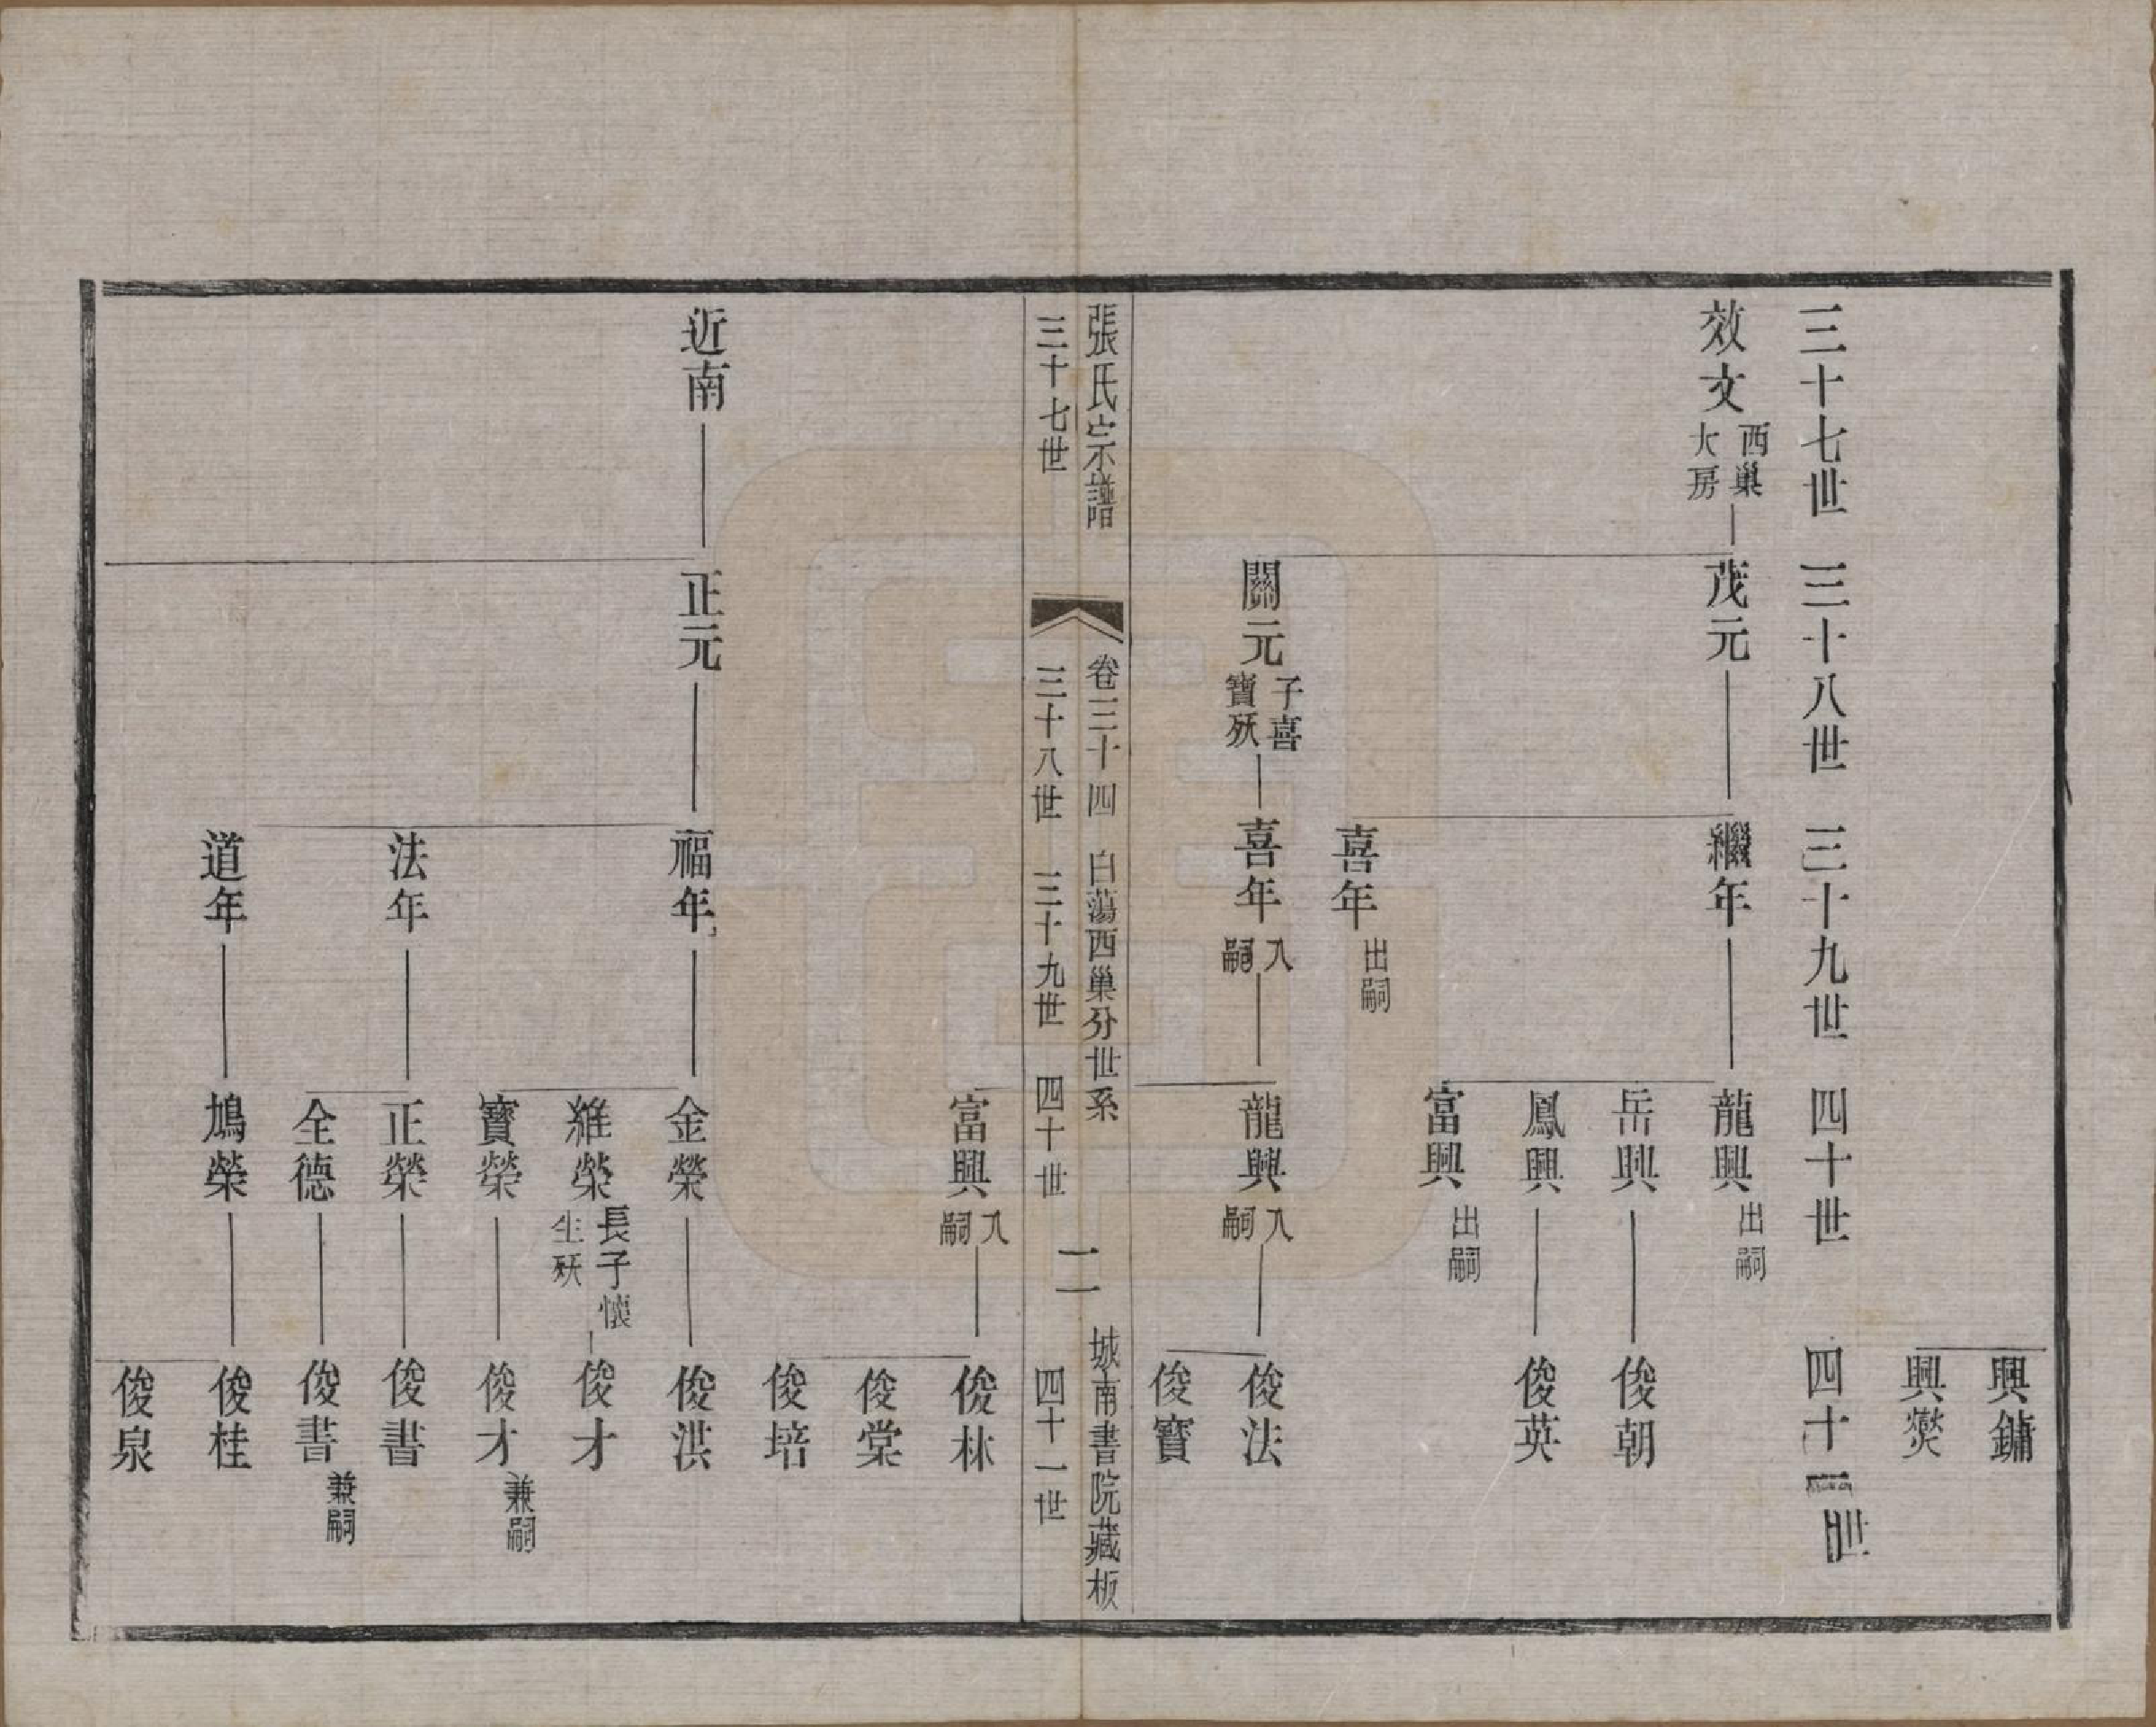 興鏞
興爕
三十七世 三十八世 三十九世 四十世 四十一世
效文 西巢大房 茂元 繼年 龍興 出嗣
岳興 俊朝
鳳興 俊英
富興 出嗣
喜年 出嗣
關元 子喜寶殀 喜年 入嗣 龍興 入嗣 俊法
俊寶
張氏宗譜 卷三十四 白蕩西巢分世系 城南書院藏板
三十七世 三十八世 三十九世 四十世 二 四十一世
富興 入嗣 俊林
俊棠
俊培
近南 正元 福年 金榮 俊洪
維榮 長子懷生殀 俊才
寶榮 俊才 兼嗣
法年 正榮 俊書
全德 俊書 兼嗣
道年 鳩榮 俊桂
俊泉